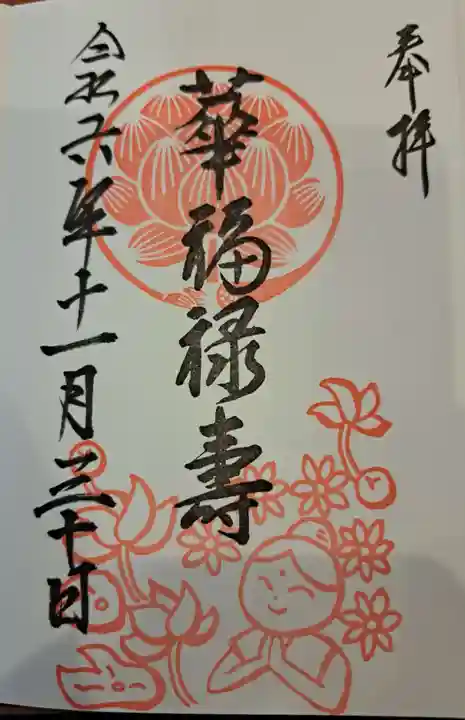 奉拝
華福禄寿
令和六年十一月三十日